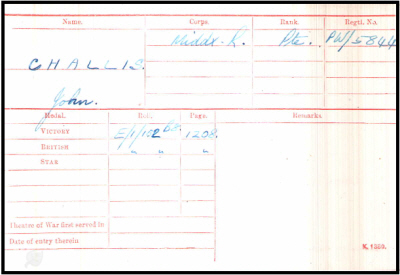 Name. Corps. Rank. Regtl. No.
Middx. R. Pte. PW/5844
CHALLIS.
John.
Medal. Roll. Page. Remarks
VICTORY E/1/102 B4. 1208.
BRITISH " " "
STAR
Theatre of War first served in
Date of entry therein
K. 1380.